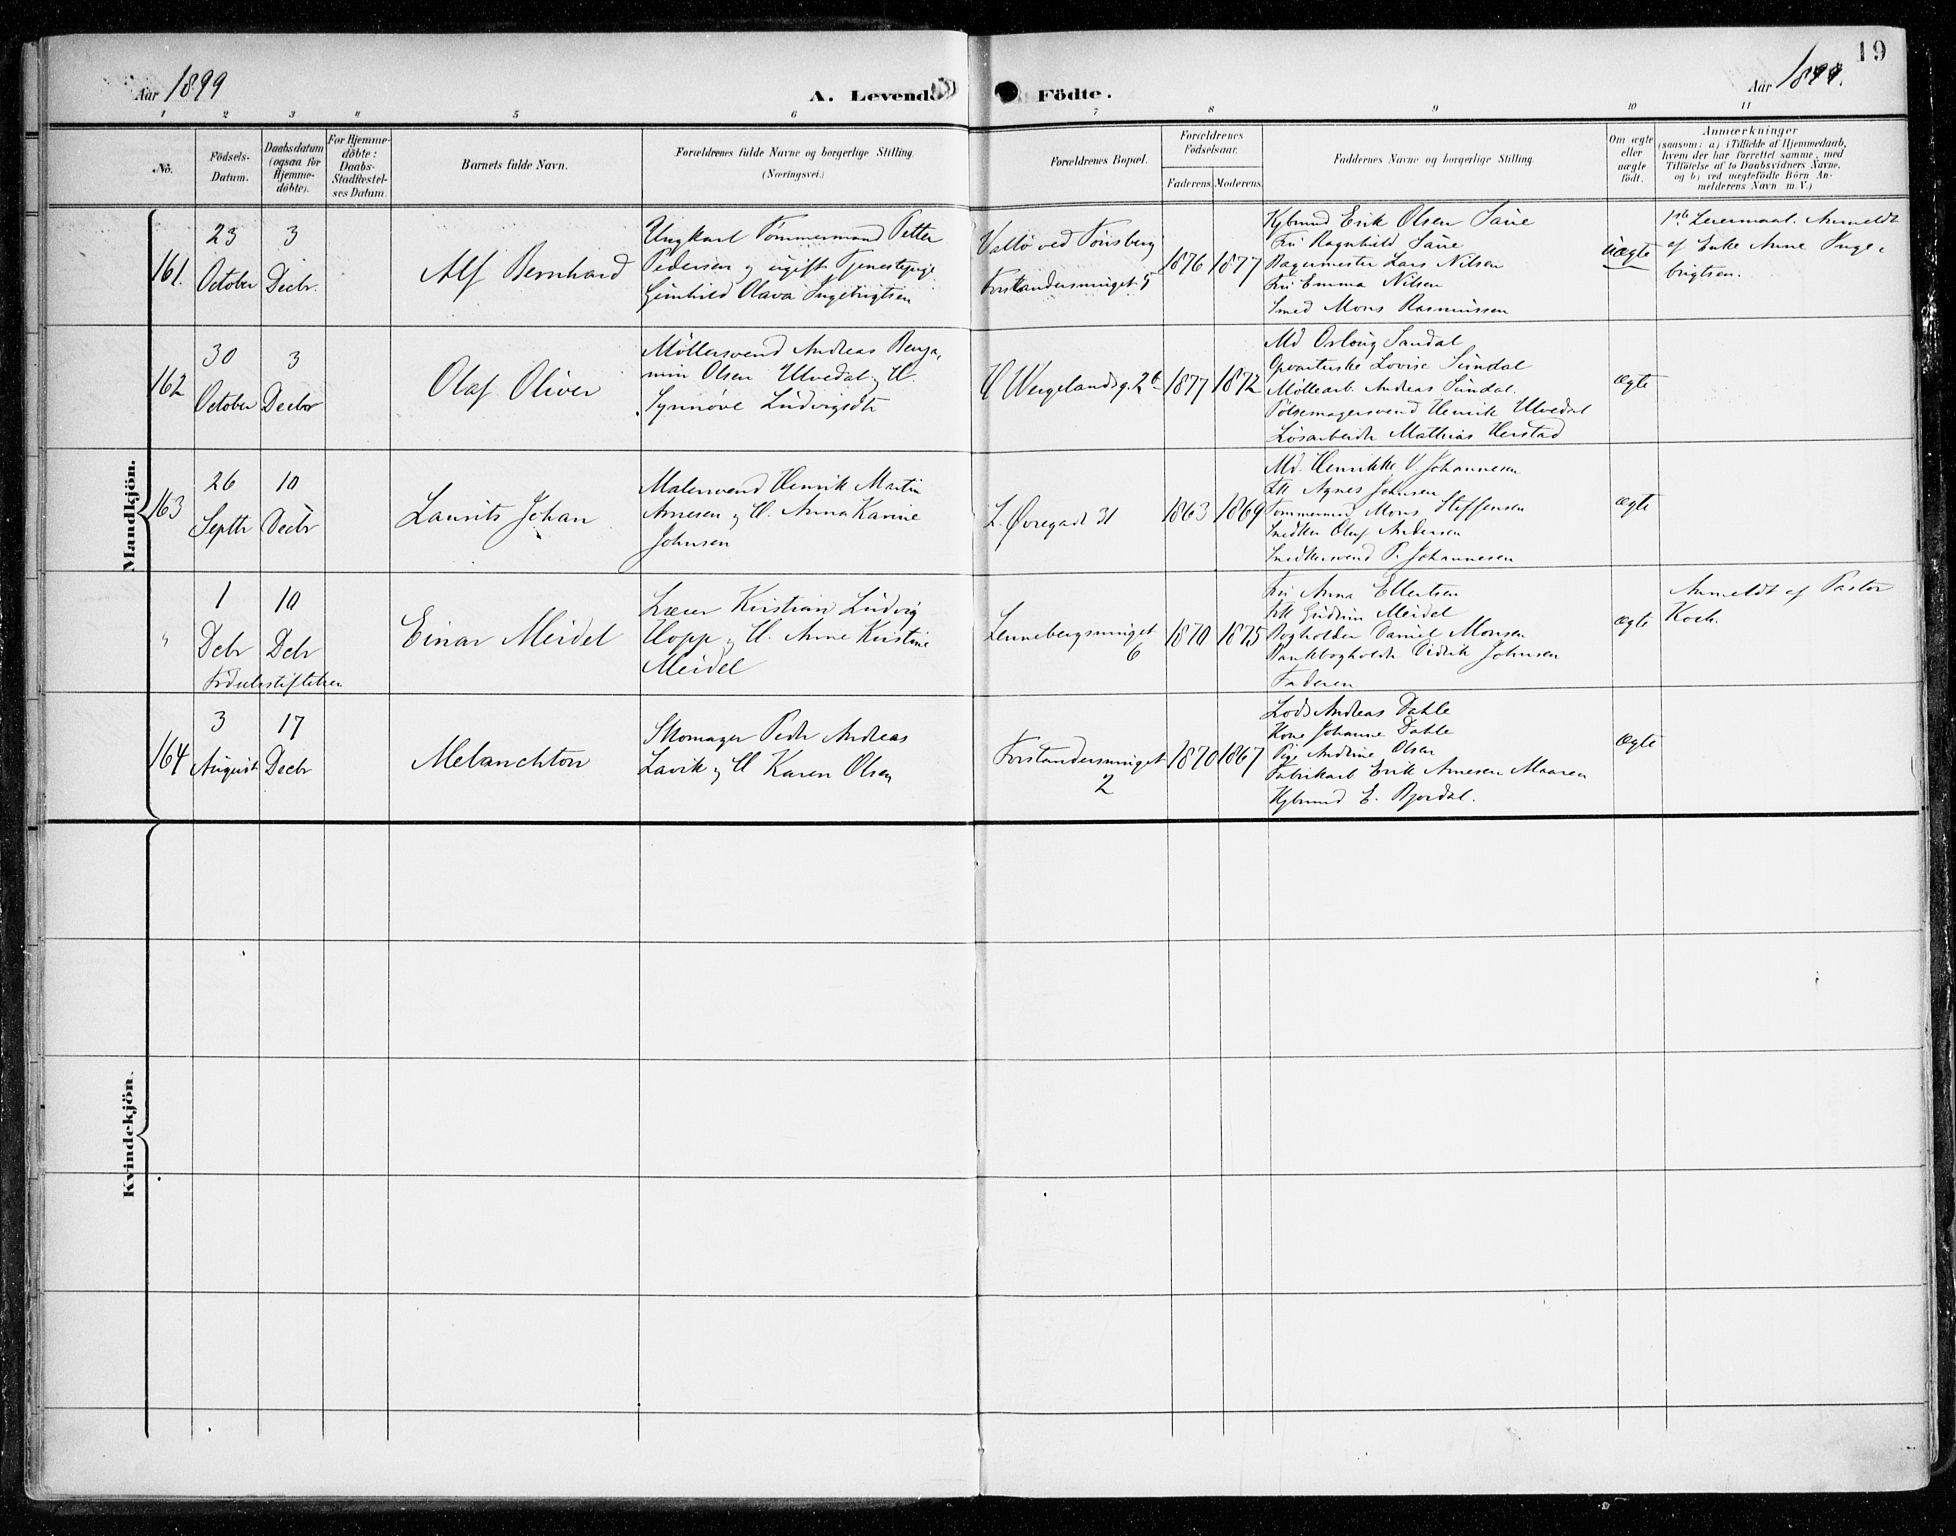 19
Aar 1899
A. Levende Födte.
Aar 1899.
1 2 3 4 5 6 7 8 9 10 11
No.
Födsels-Datum.
Daabsdatum (ogsaa for Hjemme-döbte).
For Hjemme-döbte: Daabs-Stadfæstel-ses Datum.
Barnets fulde Navn.
Forældrenes fulde Navne og borgerlige Stilling. (Næringsvei.)
Forældrenes Bopæl.
Forældrenes Födselsaar.
Faderens. Moderens.
Faddernes Navne og borgerlige Stilling.
Om ægte eller uægte födt.
Anmærkninger
(saasom: a) i Tilfælde af Hjemmedaab,
hvem der har forrettet samme, med
Tilföielse af to Daabsvidners Navne.
og b) ved uægtefödte Börn An-
melderens Navn m. V.)
Mandkjön.
161.
23 October
3 Decbr.
Alf Bernhard
Ungkarl Tømmermand Petter
Pedersen og ugift Tjenestepige
Gunhild Olava Ingebrigtsen
Vallø ved Tønsberg
Forstandersmuget 5
1876 1877
Kjbmnd Erik Olsen Saue
Fru Ragnhild Saue
Bagermester Lars Nilsen
Fru Emma Nilsen
Smed Mons Rasmussen
uægte
1ste Leiermaal. Anmeldt
af Enke Anne Inge-
brigtsen.
162
30 October
3 Decbr
Olaf Oliver
Møllersvend Andreas Benja-
min Olsen Ulvedal og H.
Synnøve Ludvigsdtr
H Wergelandsg. 26
1877 1872
Md Oslaug Sandal
Opvarterske Lovise Sundal
Møllearb. Andreas Sundal.
Pølsemagersvend Henrik Ulvedal
Løsarbeider Mathias Herstad
ægte
163
26 Septbr
10 Decbr
Laurits Johan
Malersvend Henrik Martin
Arnesen og H. Anna Karine
Johnsen
L. Øvregade 31
1863 1869
Md. Henrikke V. Johannesen
Frk Agnes Johnsen
Tømmermd Mons Steffensen
Snedker Olaf Andersen
Snedkersvend P. Johannesen
ægte
"
1 Dcbr
10 Dcbr
Fødselsstiftelsen
Einar Meidel
Lærer Kristian Ludvig
Hopp og H. Anne Kristine
Meidel
Lennebergsmuget
6
1870 1875
Fru Anna Ellertsen
Frk Gudrun Meidel
Bogholder Daniel Monsen
Bankbogholder Didrik Johnsen
Faderen
ægte
Anmeldt af Pastor
Koch.
164
3 August
17 Decbr
Melanchton
Skomager Peder Andreas
Lavik og H Karen Olsen
Forstandersmuget
2
1870 1867
Lods Andreas Dahle
Kone Johanne Dahle
Pige Andrine Olsen
Fabrikarb Erik Arnesen Maaren
Kjbmnd E. Bjordal.
ægte
Kvindekjön.